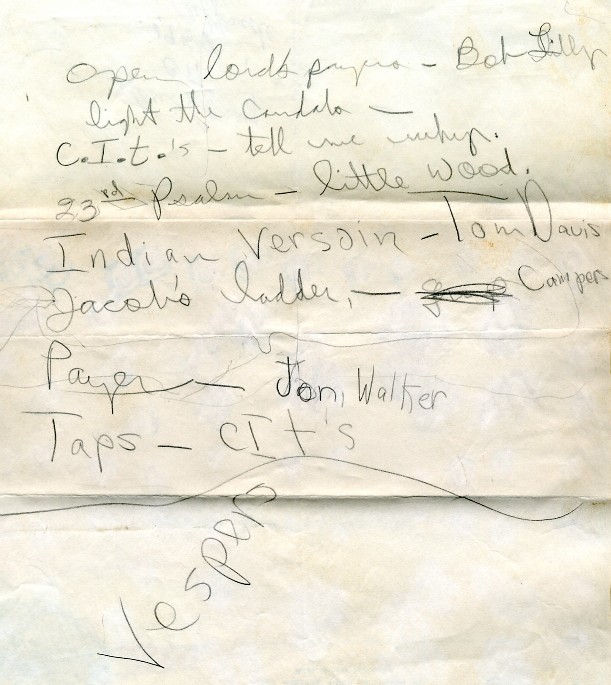 open lord's payro - Bob Lilly
light the Candala -
C.I.t.'s - tell me
23rd Psalm - little Wood.
Indian Versoin - Tom Davis
Jacob's ladder, - Campers
Payer - Toni Walker
Taps - CIt's
Vespers